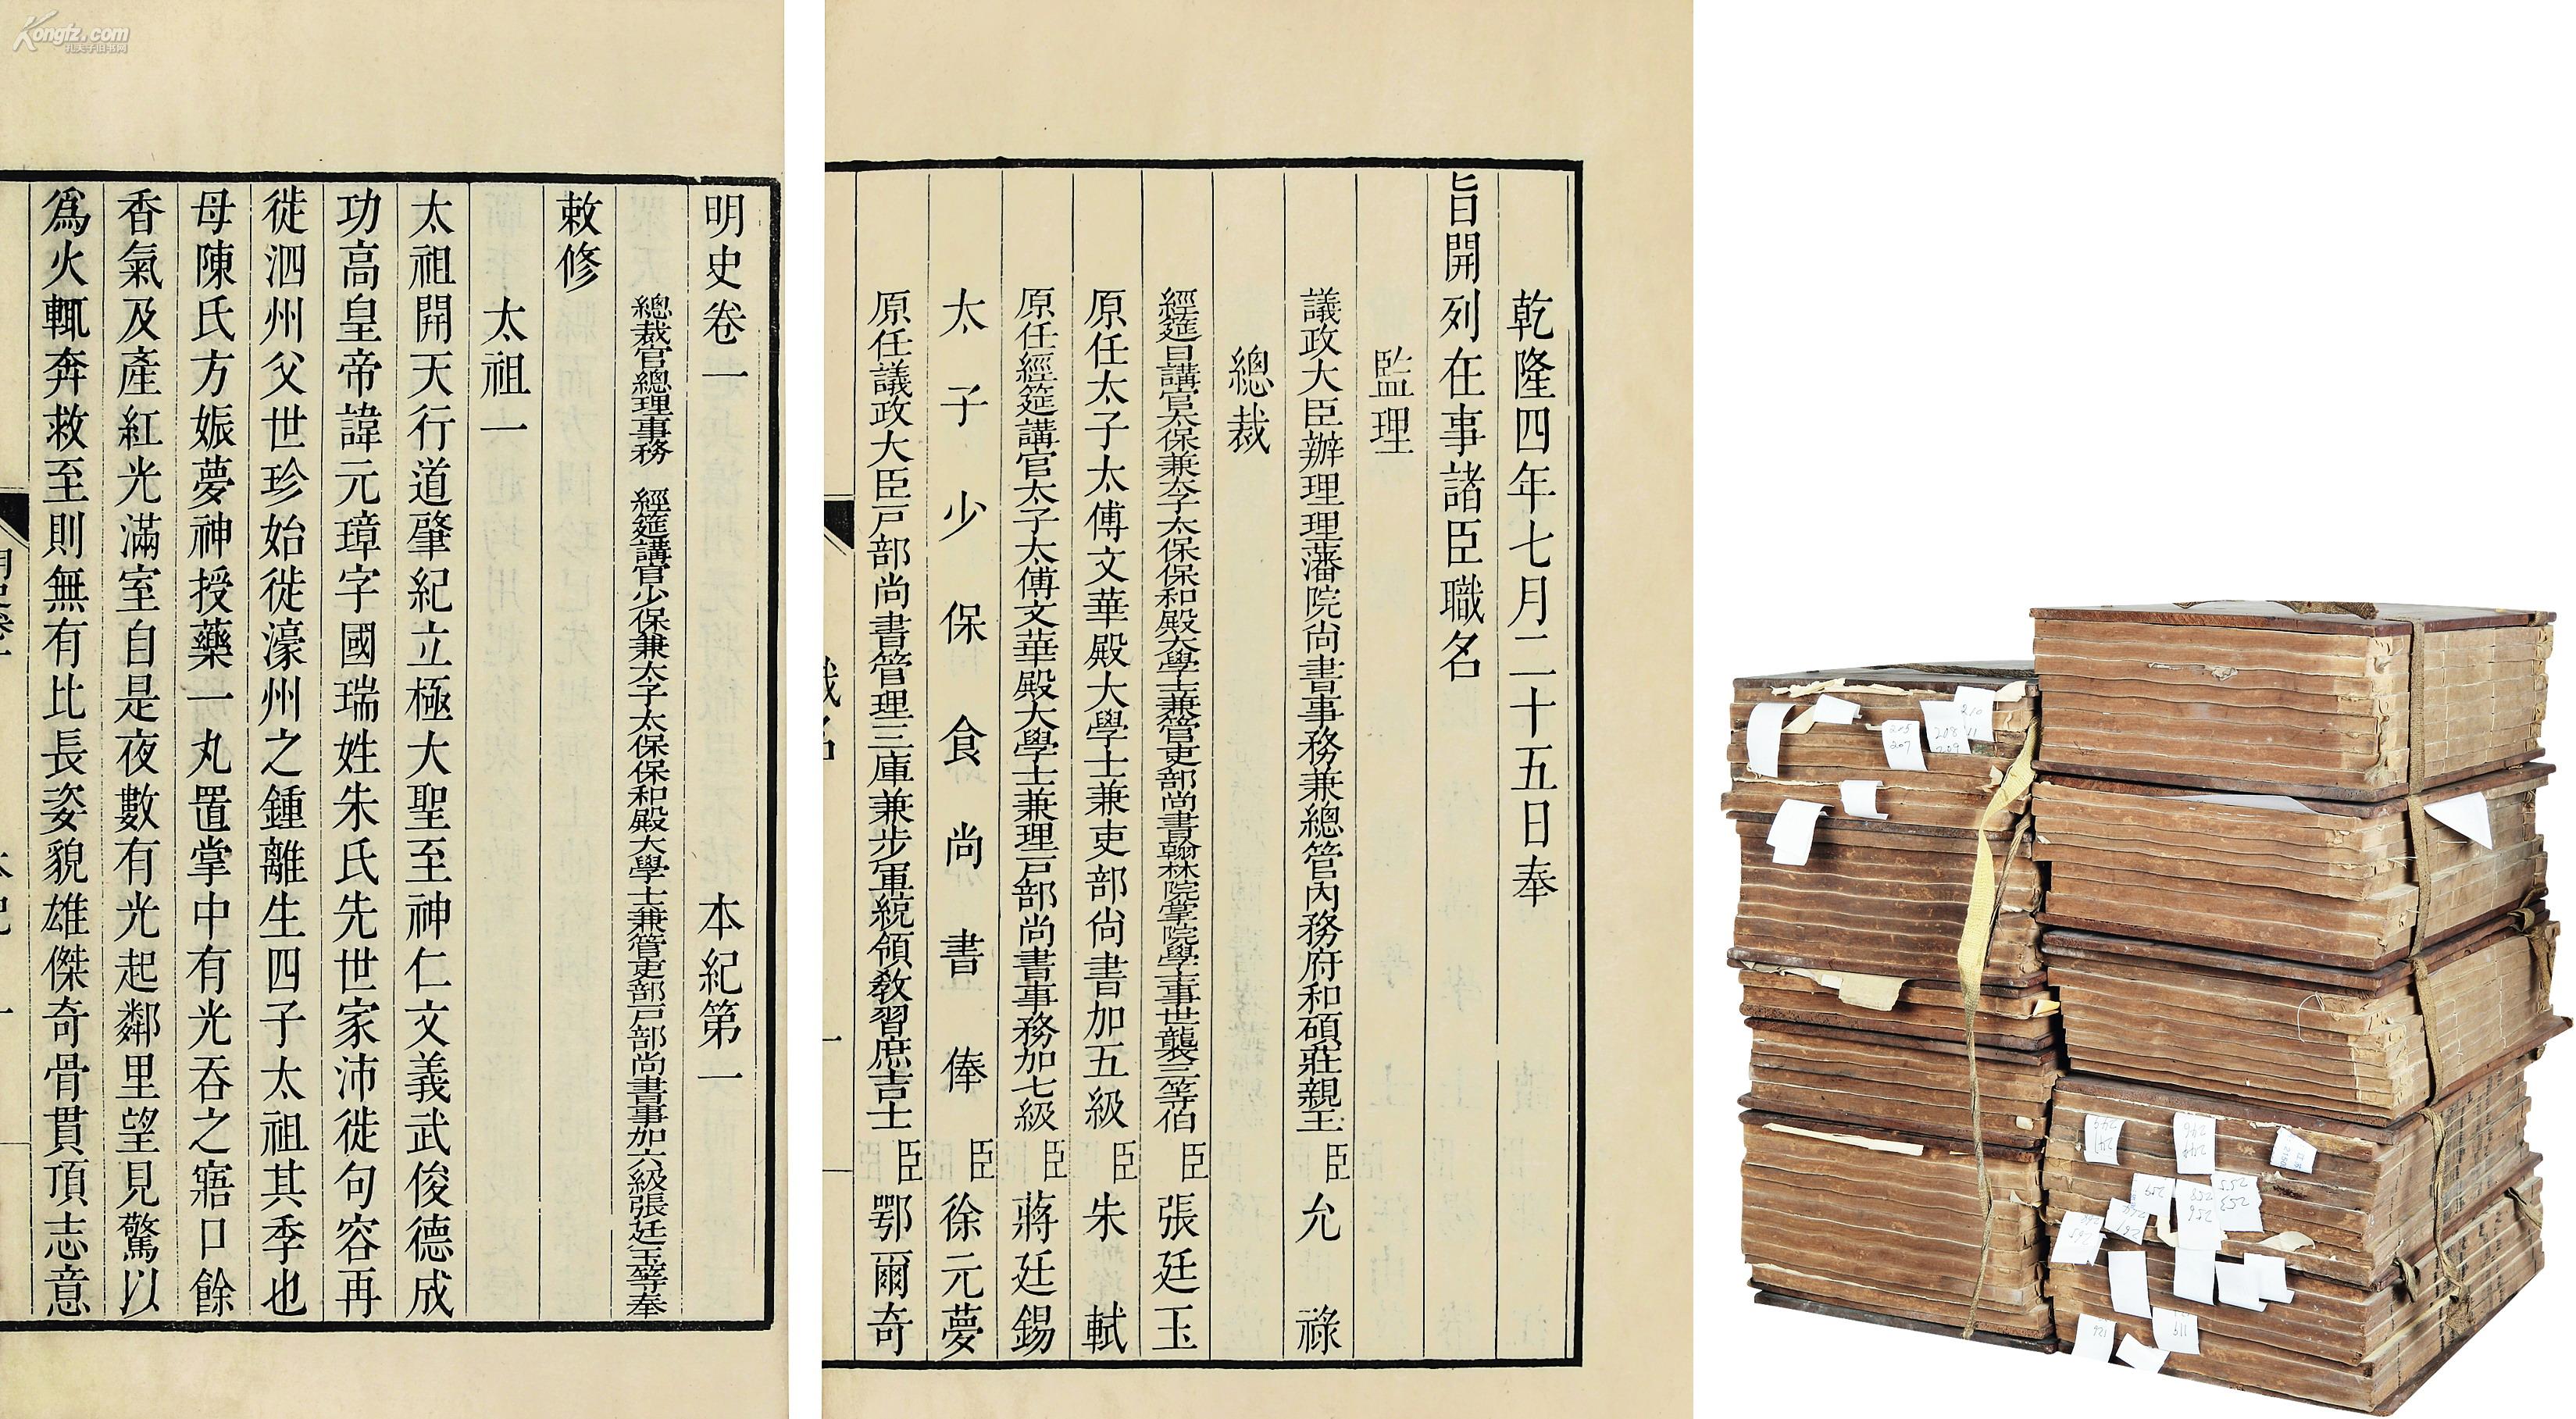 Kongfz.com
孔夫子旧书网
明史卷一 本紀第一
總裁官總理事務 經筵講官少保兼太子太保保和殿大學士兼管吏部戶部尚書事加六級張廷玉等奉
敕修
太祖一
太祖開天行道肇紀立極大聖至神仁文義武俊德成
功高皇帝諱元璋字國瑞姓朱氏先世家沛徙句容再
徙泗州父世珍始徙濠州之鍾離生四子太祖其季也
母陳氏方娠夢神授藥一丸置掌中有光吞之寤口餘
香氣及產紅光滿室自是夜數有光起鄰里望見驚以
爲火輒奔救至則無有比長姿貌雄傑奇骨貫頂志意
乾隆四年七月二十五日奉
旨開列在事諸臣職名
監理
議政大臣辦理理藩院尚書事務兼總管內務府和碩莊親王臣允祿
總裁
經筵日講官太保兼太子太保保和殿大學士兼管吏部尚書翰林院掌院學士事世襲三等伯臣張廷玉
原任太子太傅文華殿大學士兼吏部尚書加五級臣朱軾
原任經筵講官太子太傅文華殿大學士兼理戶部尚書事務加七級臣蔣廷錫
太子少保食尚書俸臣徐元夢
原任議政大臣戶部尚書管理三庫兼步軍統領教習庶吉士臣鄂爾奇
210
207
208
209